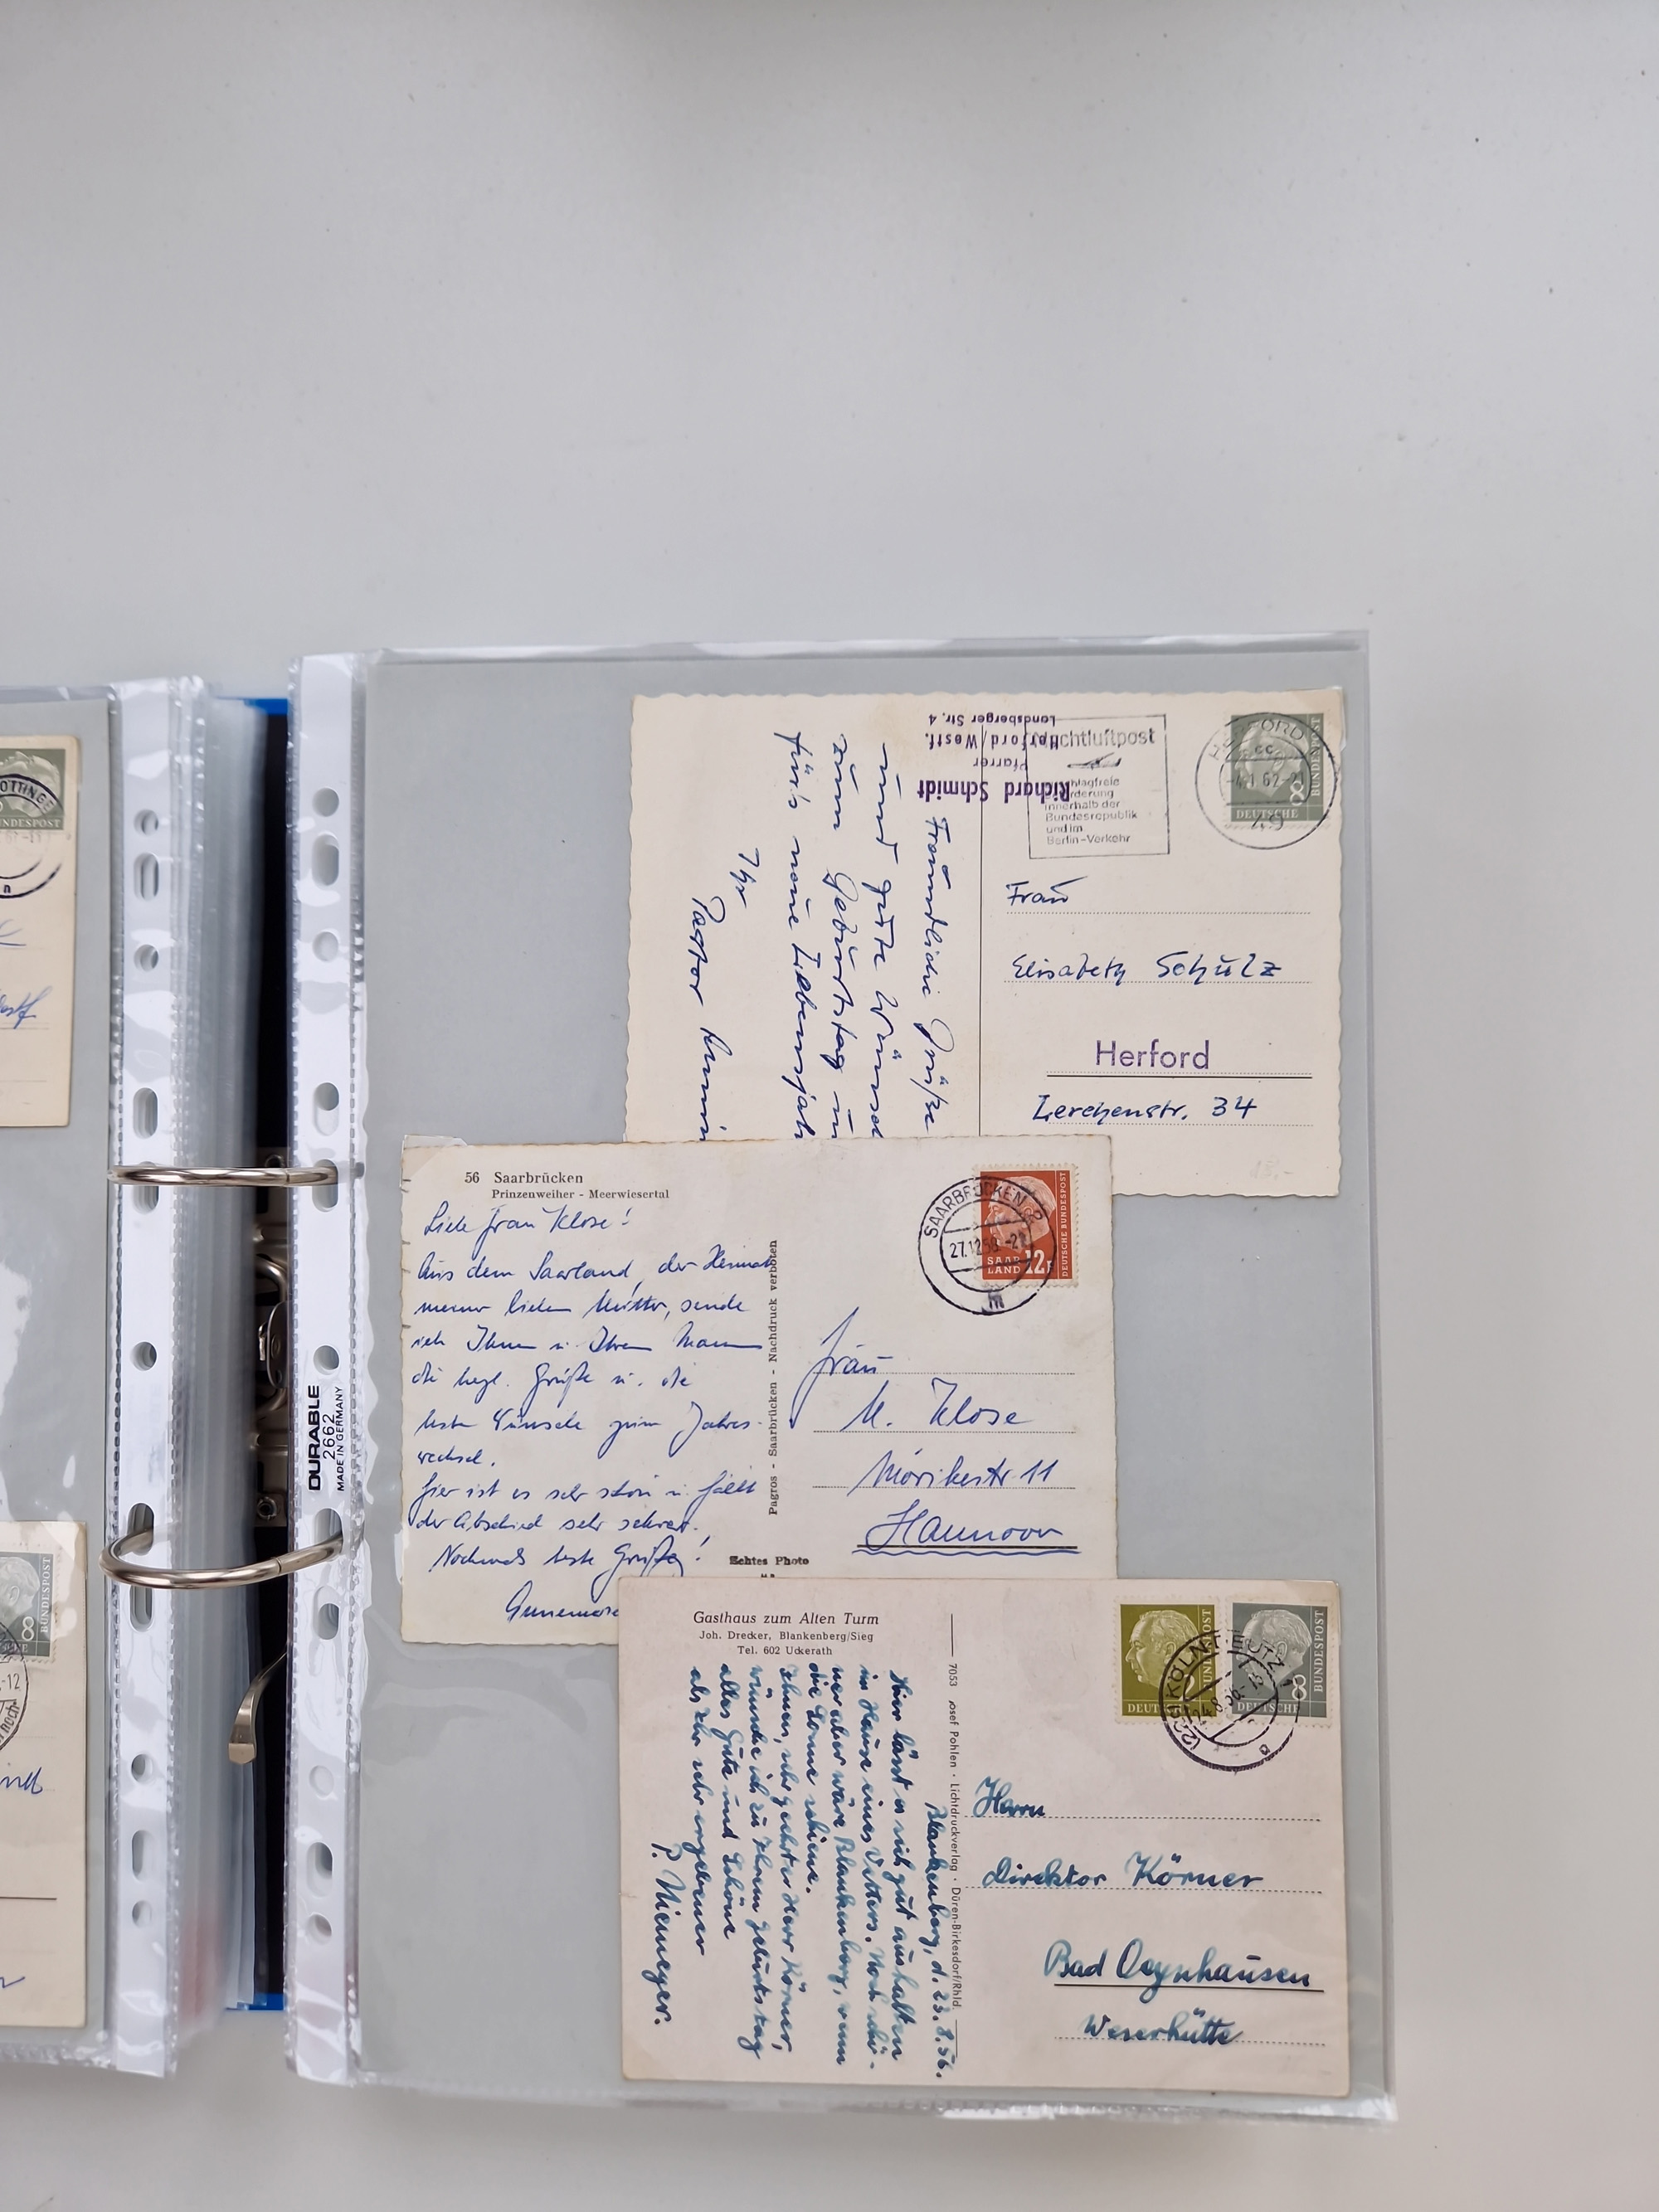 Richard Schmidt
Pfarrer
Herford/Westf.
Landsberger Str. 4
Nachtluftpost
zuschlagfreie
Beförderung
innerhalb der
Bundesrepublik
und im
Berlin-Verkehr
HERFORD
cc
-4.1.62-21
49
DEUTSCHE
BUNDESPOST
8
Freundliche Grüße
und gute Wünsche
zum Geburtstag u
für's neue Lebensjahr
Ihr
Pastor
Frau
Elisabeth Schulz
Herford
Lerchenstr. 34
56 Saarbrücken
Prinzenweiher - Meerwiesertal
Liebe Frau Klose!
Aus dem Saarland, der Heimat
meiner lieben Mutter, sende
ich Ihnen u. Ihrem Mann
die herzl. Grüße u. die
besten Wünsche zum Jahres-
wechsel.
Hier ist es sehr schön u. fällt
der Abschied sehr schwer.
Nochmals beste Grüße!
Pagros - Saarbrücken - Nachdruck verboten
Echtes Photo
SAARBRÜCKEN 2
27.12.58.-21
m
SAAR
LAND
12F
DEUTSCHE BUNDESPOST
Frau
M. Klose
Mörikestr 11
Hannover
Gasthaus zum Alten Turm
Joh. Drecker, Blankenberg/Sieg
Tel. 602 Uckerath
7053 Josef Pohlen · Lichtdruckverlag · Düren-Birkesdorf/Rhld.
Blankenberg, d. 23.8.56.
Hier lässt es sich gut aushalten
im Hause eines Vetters. Noch schö-
ner aber wäre Blankenberg, wenn
die Sonne schiene.
Ihnen, sehr geehrter Herr Körner,
wünsche ich zu Ihrem Geburtstag
alles Gute und Schöne
als Ihr sehr ergebener
P. Niemeyer.
DEUTSCHE
BUNDESPOST
DEUTSCHE
BUNDESPOST
8
(22c) KÖLN-DEUTZ
24.8.56.-13
Herrn
Direktor Körner
Bad Oeynhausen
Weserhütte
DURABLE
2662
MADE IN GERMANY
BUNDESPOST
8
BUNDESPOST